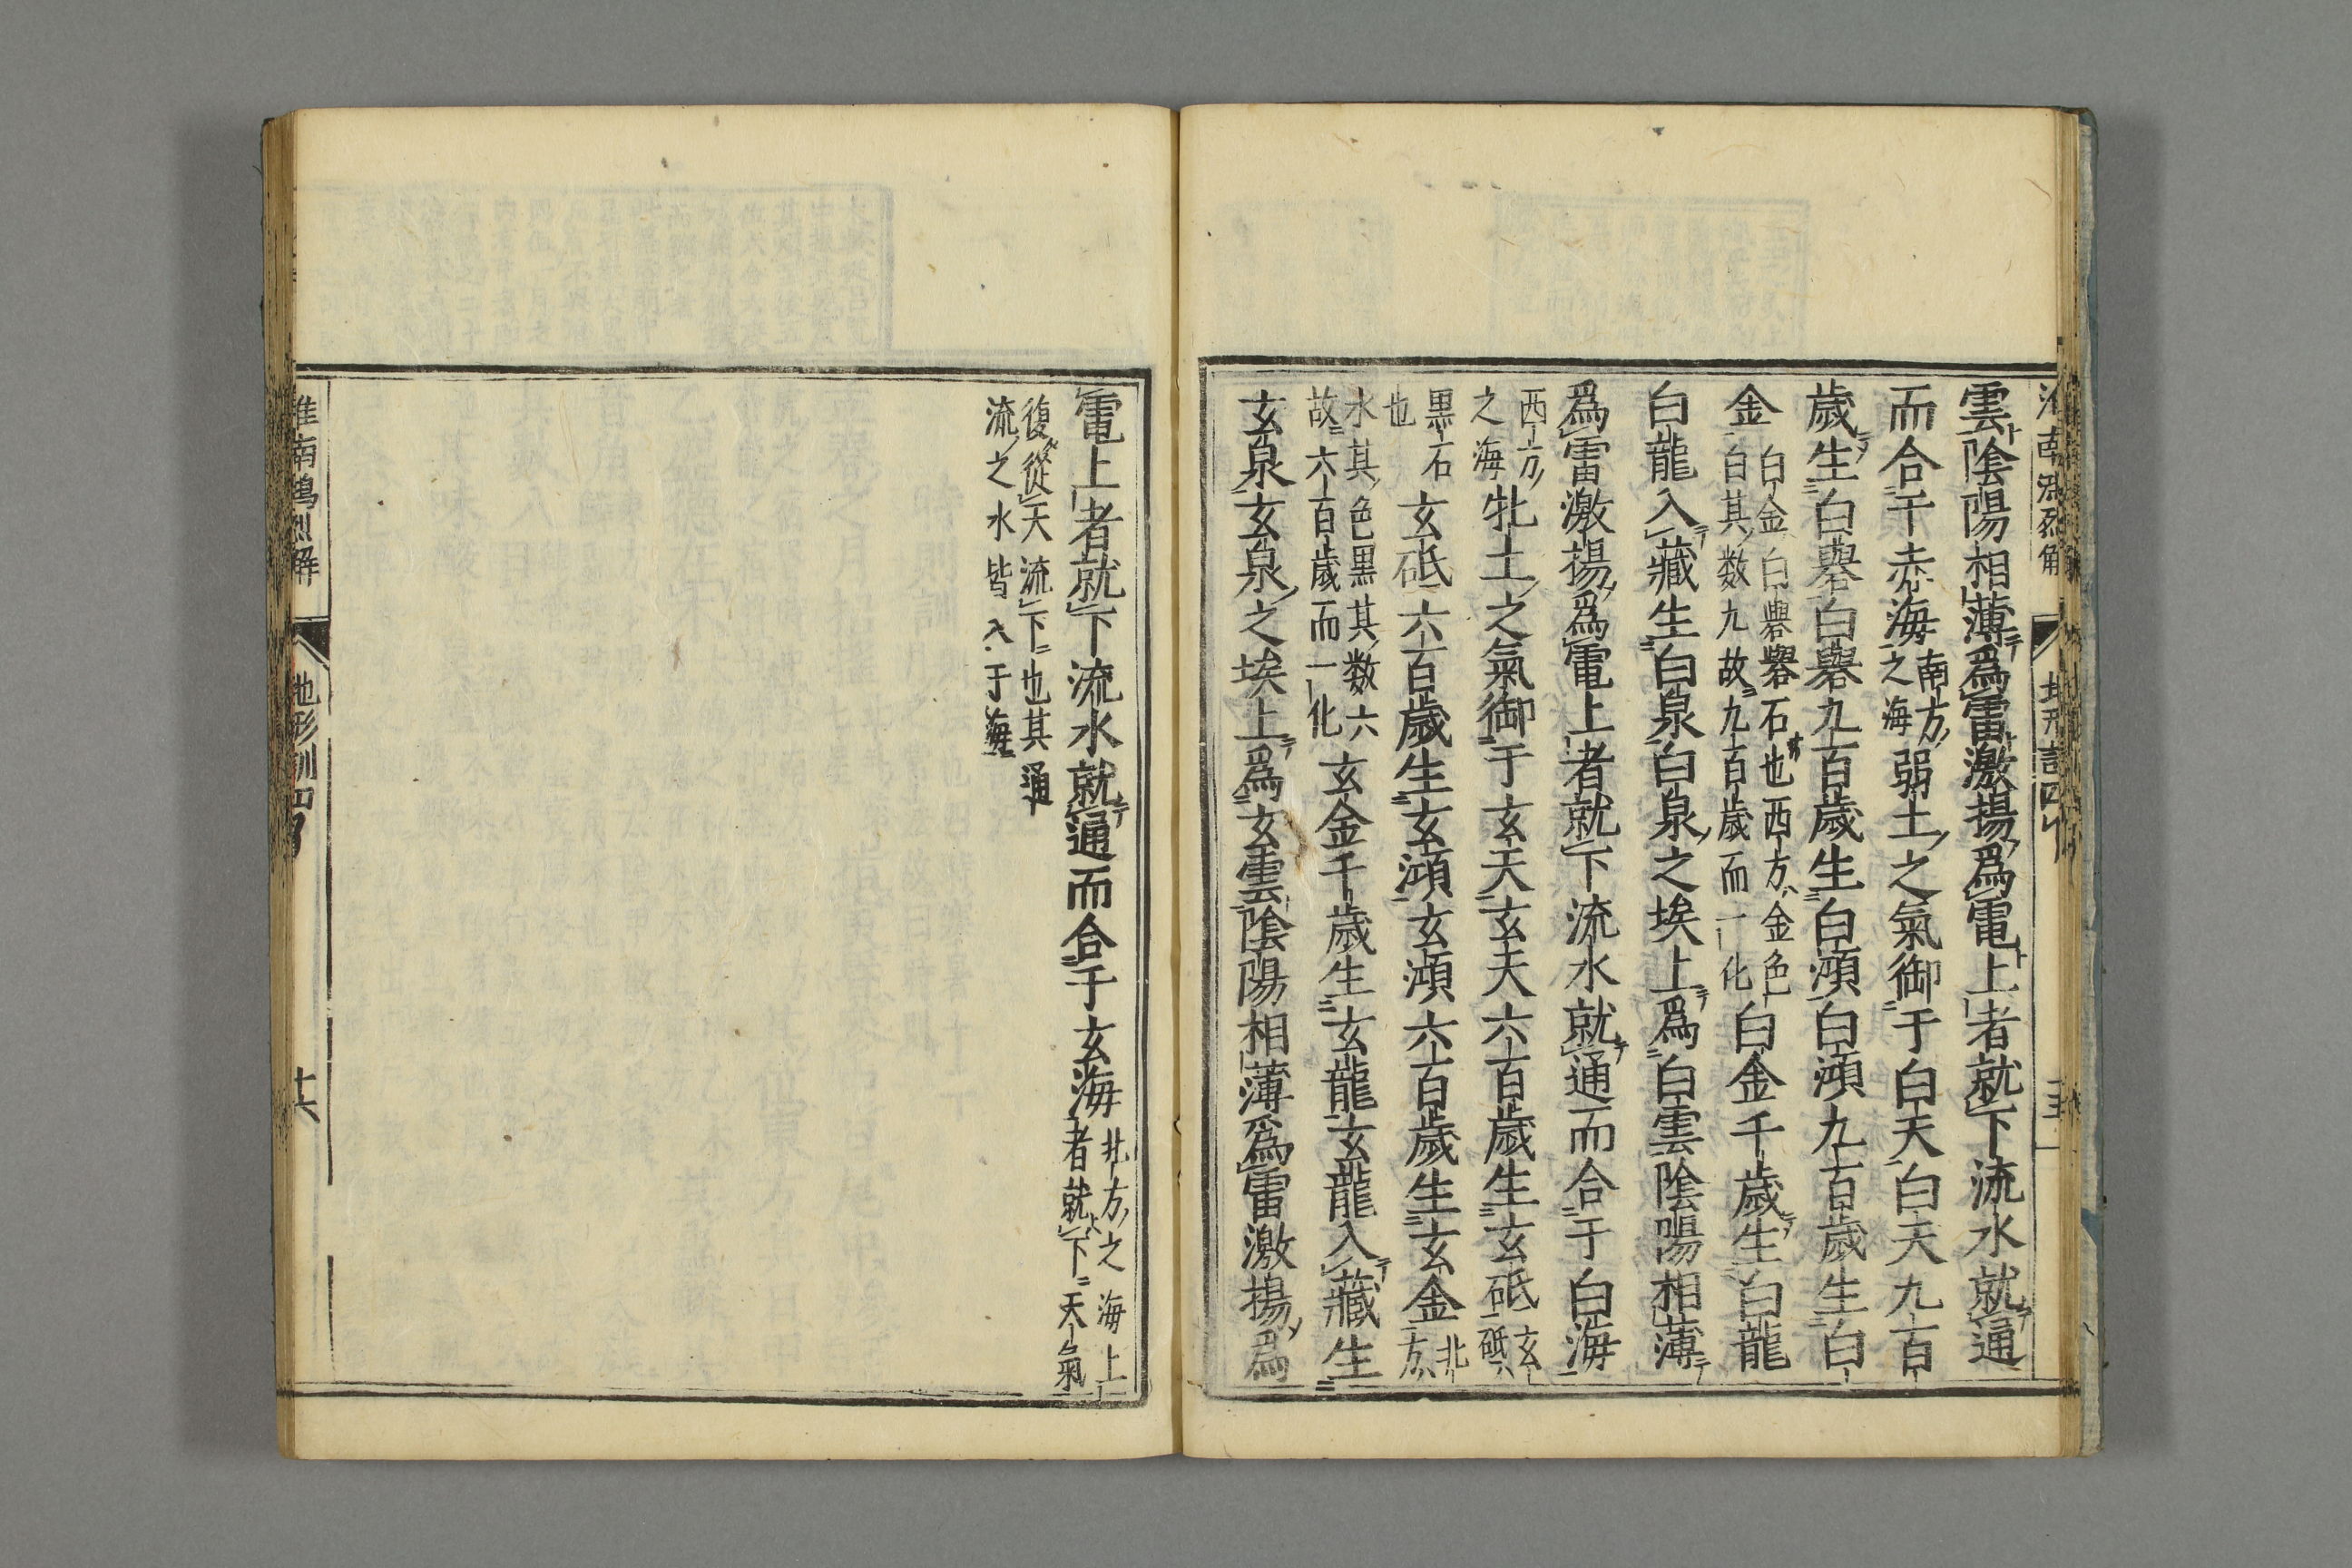 雲陰陽相薄爲雷激揚爲電上者就下流水就通
而合于赤海南方之海弱土之氣御于白天白天九百
歲生白礜白礜九百歲生白澒白澒九百歲生白
金白金白礜礜石也西方金色白其数九故九百歲而一化白金千歲生白龍
白龍入藏生白泉白泉之埃上爲白雲陰陽相薄
爲雷激揚爲電上者就下流水就通而合于白海
西方之海牝土之氣御于玄天玄天六百歲生玄砥玄砥
黒石也玄砥六百歲生玄澒玄澒六百歲生玄金北方
水其色黒其数六故六百歲而一化玄金千歲生玄龍玄龍入藏生
玄泉玄泉之埃上爲玄雲陰陽相薄爲雷激揚爲
電上者就下流水就通而合于玄海北方之海上者就下天氣
復從天流下也其通流之水皆入于海
淮南鴻烈解 地形訓四 十六